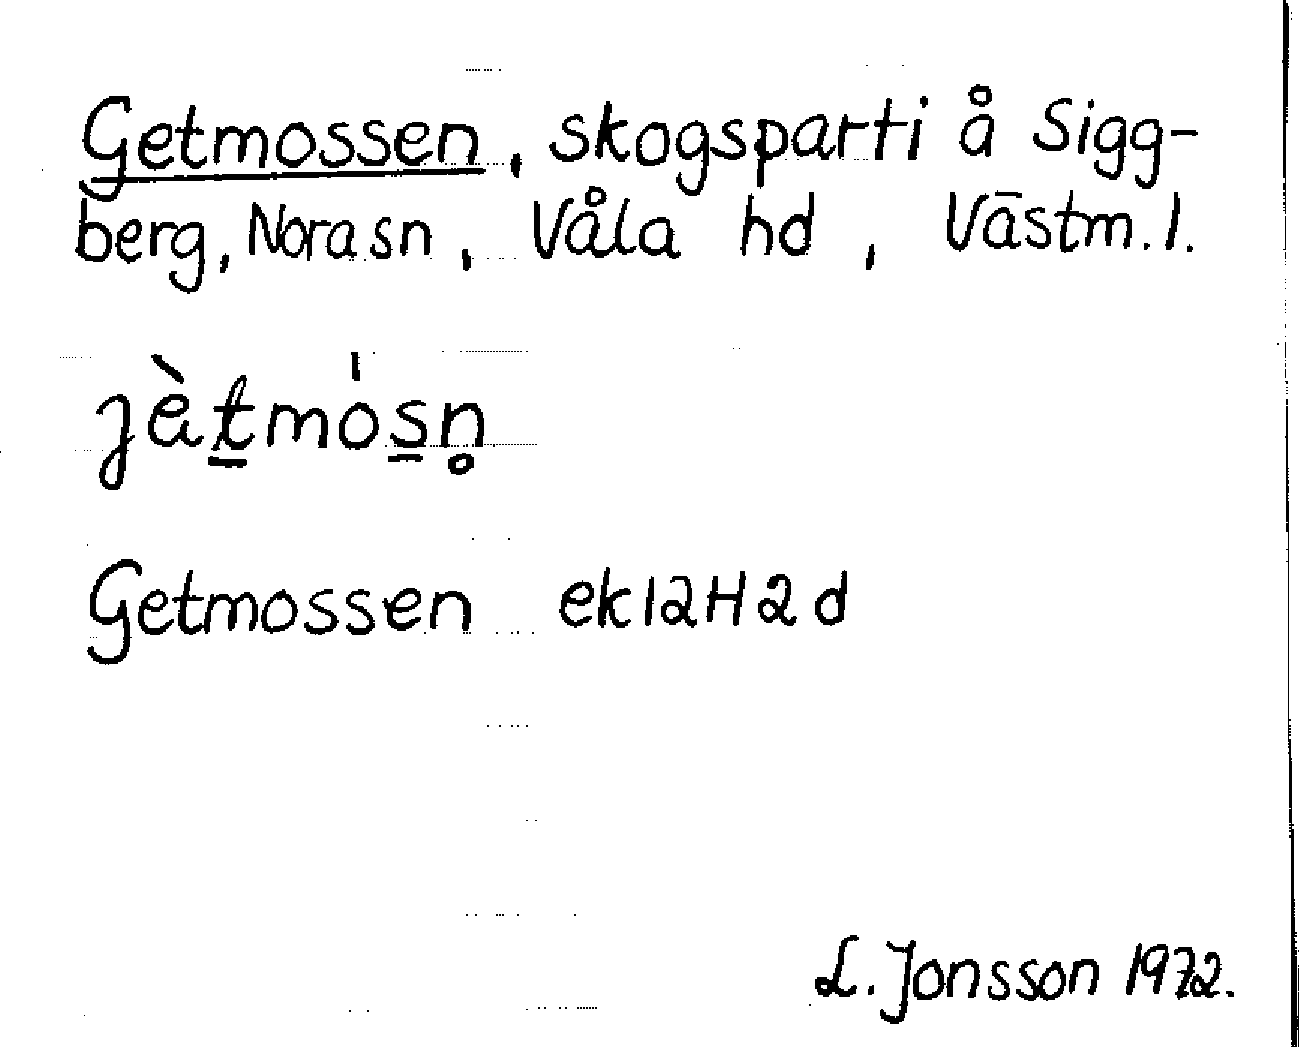 Getmossen, skogsparti å Sigg-
berg, Nora sn, Våla hd, Västm. l.
jètmósn̥
Getmossen ek 12H2d
L. Jonsson 1972.